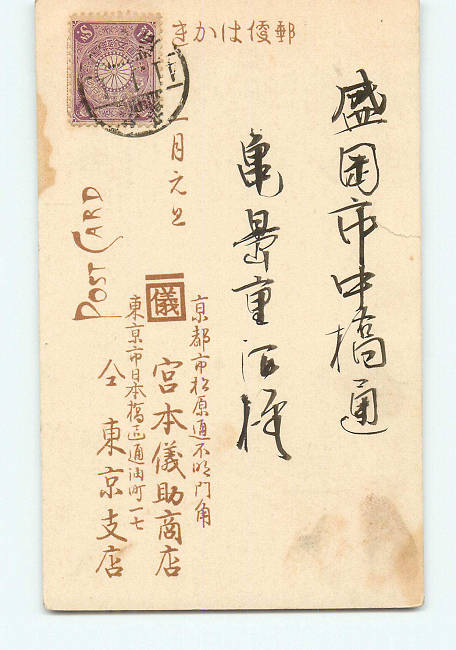 郵便はかき
盛岡市中橋通
重治様
一月元旦
POST CARD
儀
京都市松原通不明門角
宮本儀助商店
東京市日本橋區通油町一七
仝東京支店